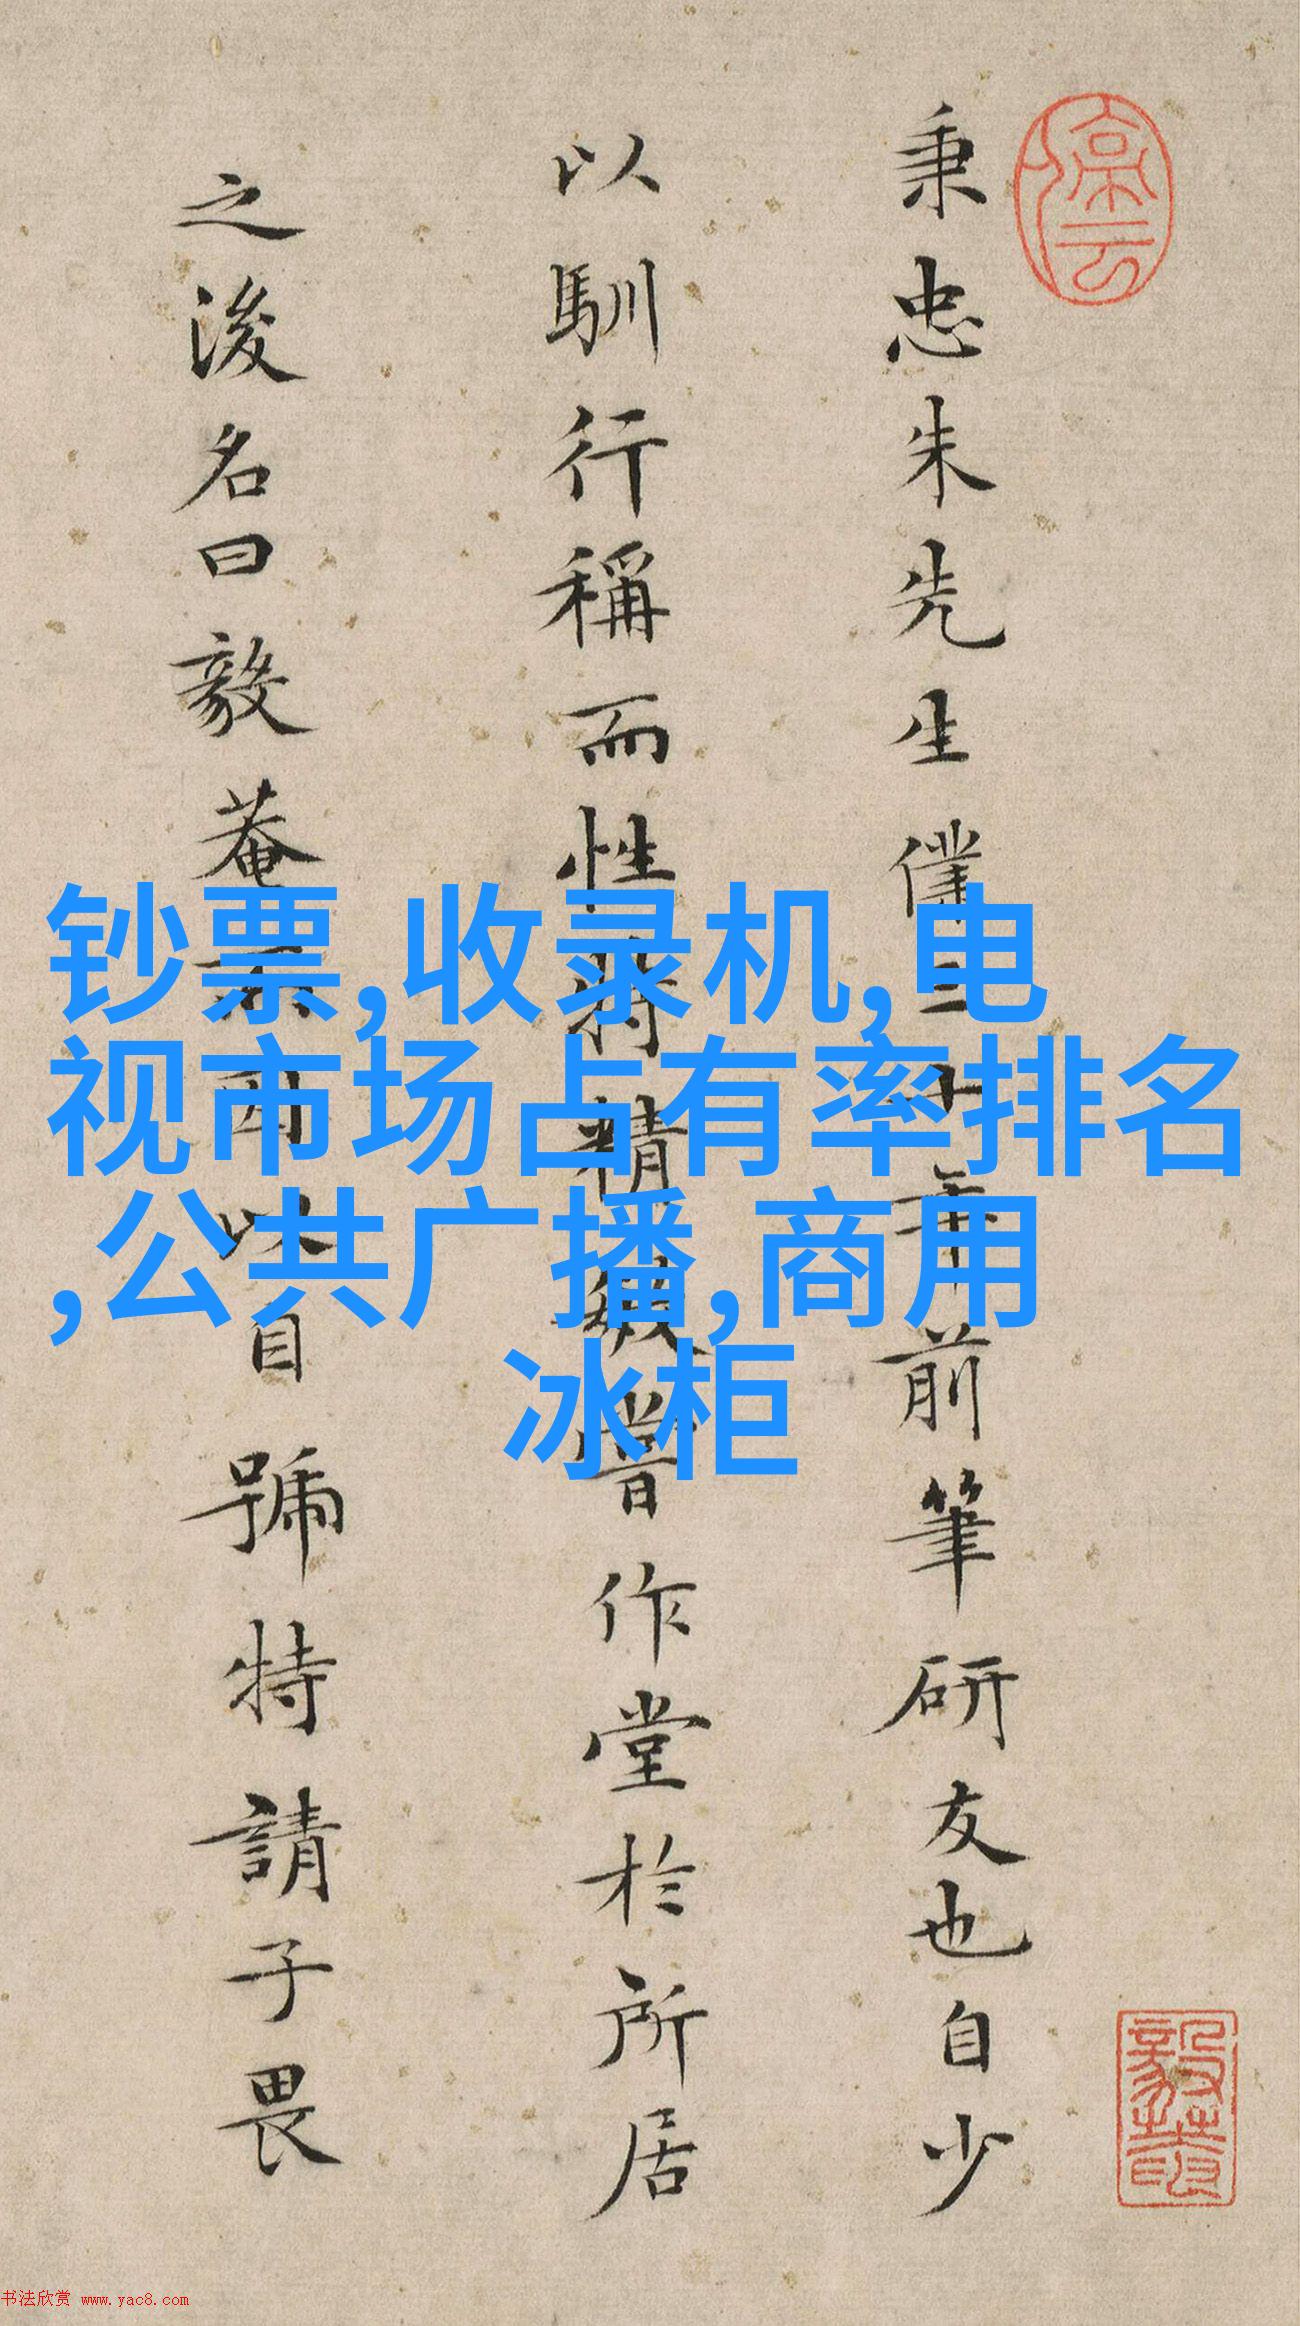 秉忠朱先生僅三十年前筆研友也自少
以馴行稱而性特精敏嘗作堂於所居
之後名曰毅菴不因以自號特請予畏
钞票,收录机,电
视市场占有率排名
,公共广播,商用
冰柜
书法欣赏 www.yac8.com